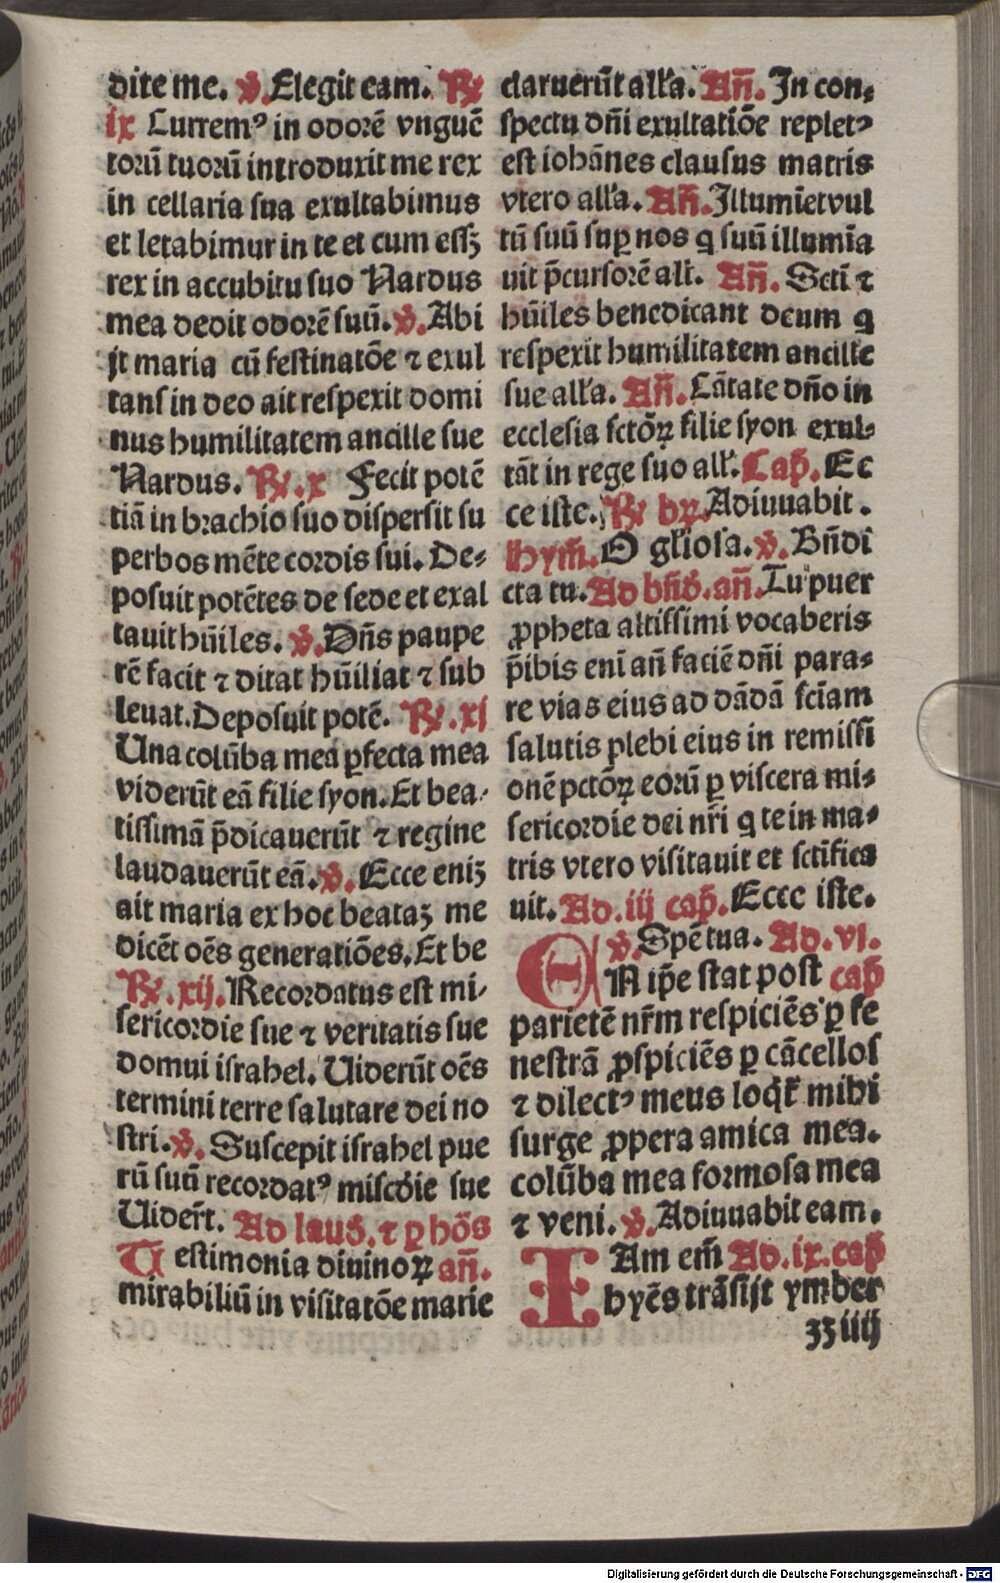 dite me. ℣. Elegit eam. ℟
ix Curremꝰ in odorē vnguē
torū tuorū introduxit me rex
in cellaria sua exultabimus
et letabimur in te et cum essꝫ
rex in accubitu suo Nardus
mea dedit odorē suū. ℣. Abi
jt maria cū festinatōe ⁊ exul
tans in deo ait respexit domi
nus humilitatem ancille sue
Nardus. ℟. x Fecit potē
tiā in brachio suo dispersit su
perbos mēte cordis sui. De⸗
posuit potētes de sede et exal
tauit hūiles. ℣. Dn̄s paupe
rē facit ⁊ ditat hūiliat ⁊ sub
leuat. Deposuit potē. ℟. xj
Una colūba mea ꝑfecta mea
viderūt eā filie syon. Et bea⸗
tissimā p̄dicauerūt ⁊ regine
laudauerūt eā. ℣. Ecce eniꝫ
ait maria ex hoc beataꝫ me
dicēt oēs generatiōes. Et be
℟. xij. Recordatus est mi⸗
sericordie sue ⁊ veritatis sue
domui israhel. Uiderūt oēs
termini terre salutare dei no
stri. ℣. Suscepit israhel pue
rū suū recordatꝰ miscd̄ie sue
Uider̄t. Ad laud̄. ⁊ ꝑ hōs
Testimonia diuinoꝝ an̄.
mirabiliū in visitatōe marie
claruerūt all'a. An̄. In con⸗
spectu dn̄i exultatiōe repletꝰ
est iohānes clausus matris
vtero all'a. An̄. Illumīet vul
tū suū suꝑ nos q suū illumīa
uit p̄cursorē all'. An̄. Sctī ⁊
hūiles benedicant deum q
respexit humilitatem ancille
sue all'a. An̄. Cātate dn̄o in
ecclesia sctōꝝ filie syon exul⸗
tāt in rege suo all'. Cap̄. Ec
ce iste. ℟ br̄. Adiuuabit.
hym̄. O gl'iosa. ℣. Bn̄di
cta tu. Ad bn̄d̄. an̄. Tu puer
ꝓpheta altissimi vocaberis
p̄ibis enī an̄ faciē dn̄i para⸗
re vias eius ad dādā sciam
salutis plebi eius in remissi
onē pctōꝝ eorū ꝑ viscera mi⸗
sericordie dei nr̄i q te in ma⸗
tris vtero visitauit et sctīfica
uit. Ad. iij cap̄. Ecce iste.
℣. Spē tua. Ad. vi.
EN ip̄e stat post cap̄
parietē nr̄m respiciēs ꝑ fe
nestrā ꝓspiciēs ꝑ cācellos
⁊ dilectꝰ meus loq̄t̄ mihi
surge ꝓpera amica mea.
colūba mea formosa mea
⁊ veni. ℣. Adiuuabit eam.
IAm em̄ Ad. ix. cap̄
hyēs trāsijt ymber
ʒʒ iiij
Digitalisierung gefördert durch die Deutsche Forschungsgemeinschaft - DFG